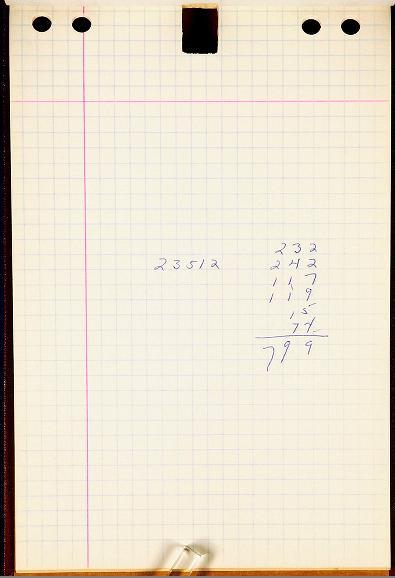 232
23512 242
117
119
15
74
799